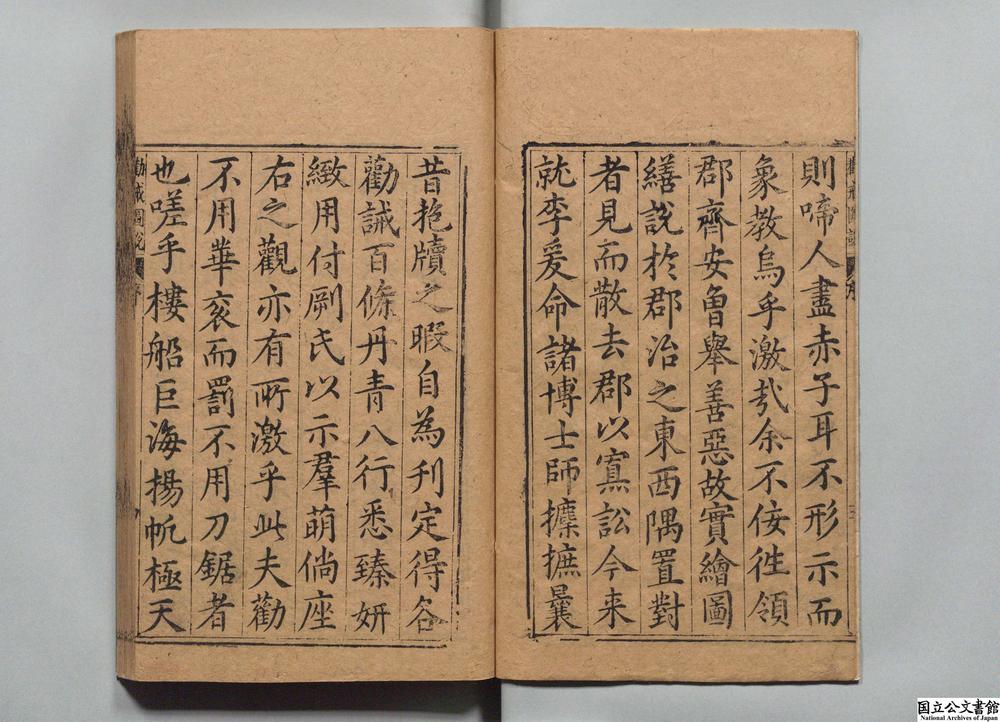 則啼人盡赤子耳不形示而
象教烏乎激哉余不佞徃領
郡齊安曾舉善惡故實繪圖
繕說於郡治之東西隅置對
者見而散去郡以寡訟今来
就李爰命諸博士師摭摭曩
昔抱牘之暇自為刋定得各
勸誡百條丹青八行悉臻妍
緻用付劂氏以示羣萌倘座
右之觀亦有所激乎此夫勸
不用華衮而罰不用刀鋸者
也嗟乎樓船巨海揚帆極天
勸戒圖說 序
國立公文書館
National Archives of Japan